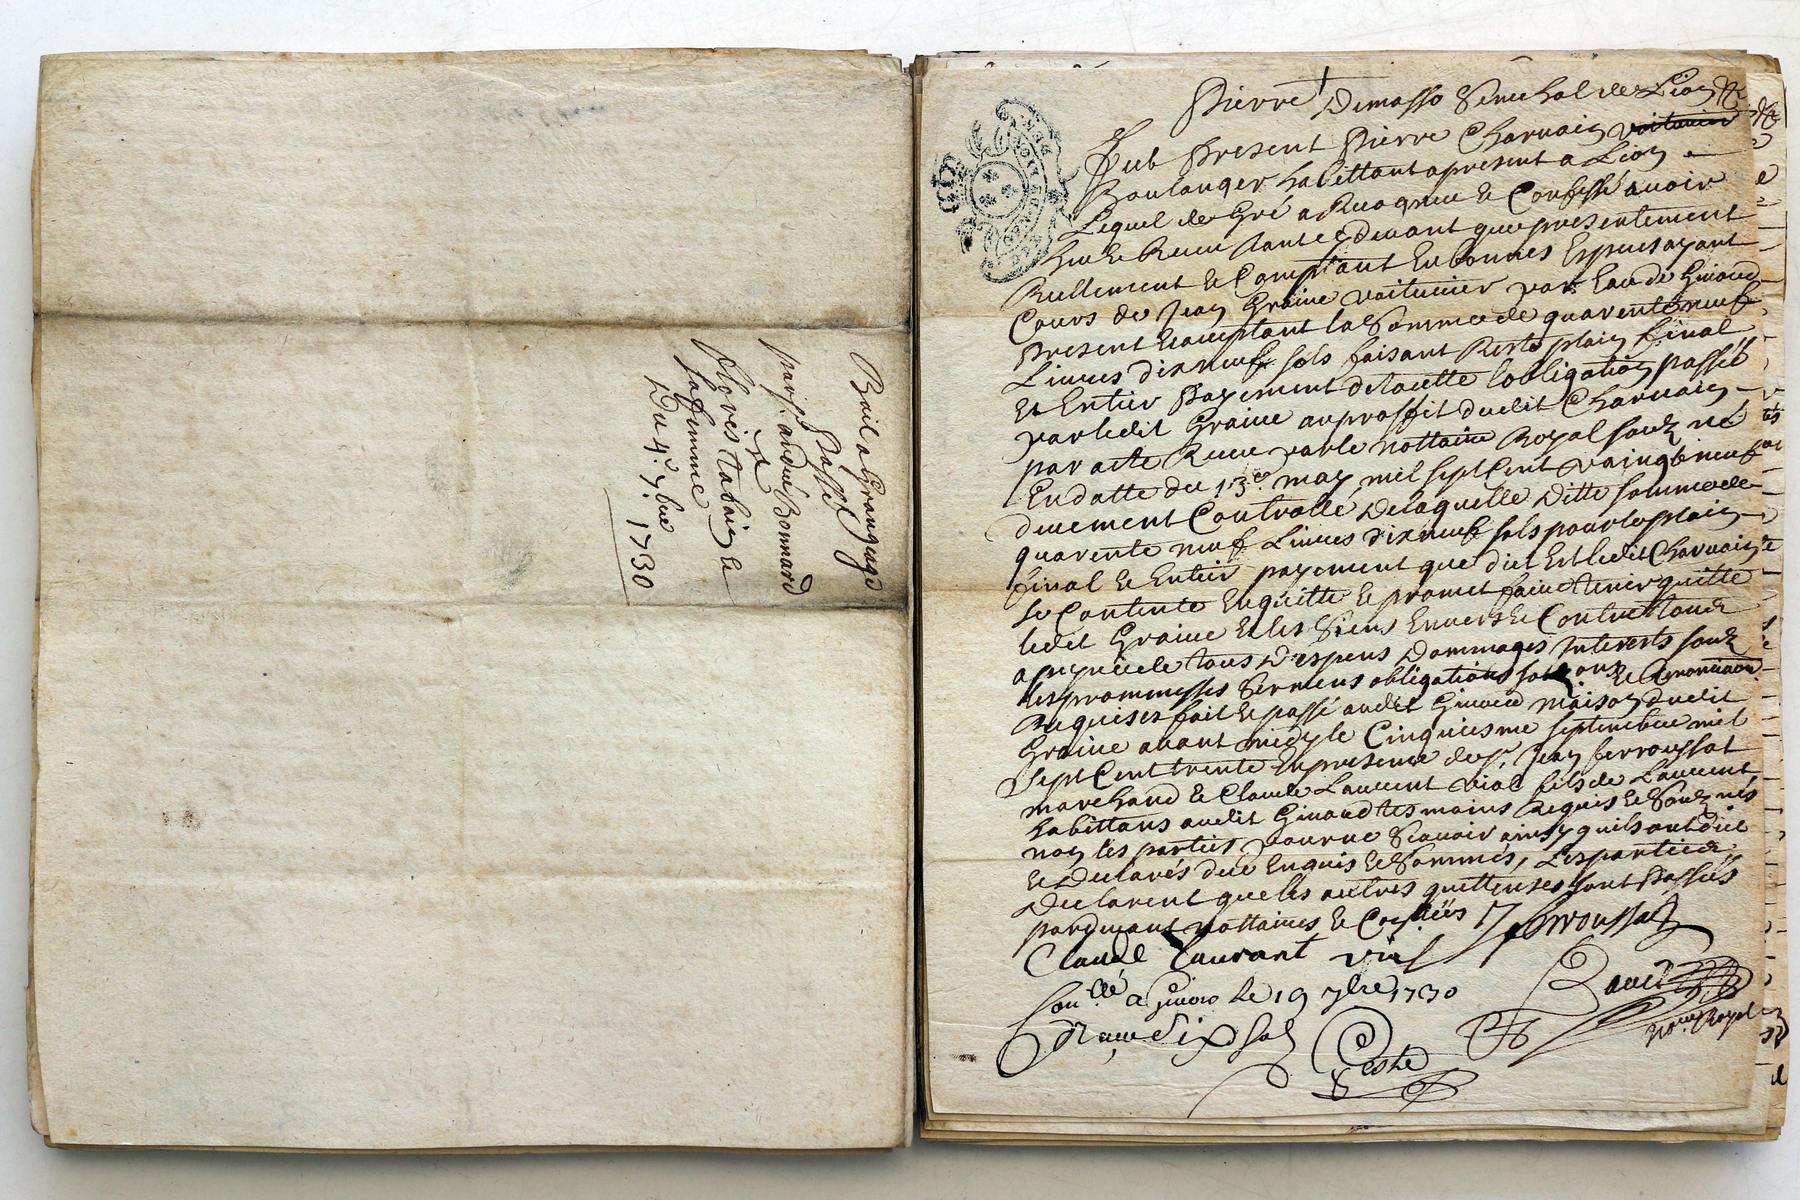 Bail a Grangage
Passé
par s.r andré Bonnard
a
sa femme
Du 4.e 7.bre 1730
Pierre Demasso Senechal de Lion
fut Present Pierre Charvain voiturier
Boulanger habittant apresent a Lion
Lequel de Gré a Recogneu & Confessé avoir
heu & Receu tant cydevant que presentement
Reellement & Comptant En bonnes Especes ayant
Cours de Jean Graine voiturier par Eau de Givord
Present & aceptant la Somme de quarente neuf
Livres dix neuf sols faisant Reste plain final
Et Entier Payement de la cette obligation passée
par ledit Graine au proffit dudit Charvain
par acte Receu par le nottaire Royal soubz né
En datte du 13.e may mil sept Cent vaingt neuf
duement Controllé, De laquelle Ditte somme de
quarente neuf Livres dix neuf sols pour le plain
final & Entier payement que dict Est ledit Charvain
se Contente En quitte & promet faire tenir quitte
ledit Graine & les Siens Envers & Contre tous
a peyne de tous Despens Dommages Interests soubz
les prommesses sermens obligations
Requises fait & passé audit Givord maison dudit
Graine avant midy le Cinquiesme septembre mil
sept Cent trente En presence de s.r Jean ferroussat
marchand & Claude Laurent vial fils de Laurent
habittans audit Givord tesmoins Requis & Soubz nés
non les parties pour ne Scavoir ainsy quils ont dict
& Declarés de ce Enquis & Sommés, Les parties
Declarent que les autres quittenses sont Passées
pardevant nottaires &
J ferroussat
Claude Laurant vial
Con.llé a Givors le 19 7bre 1730
Receu dix sols
Royal